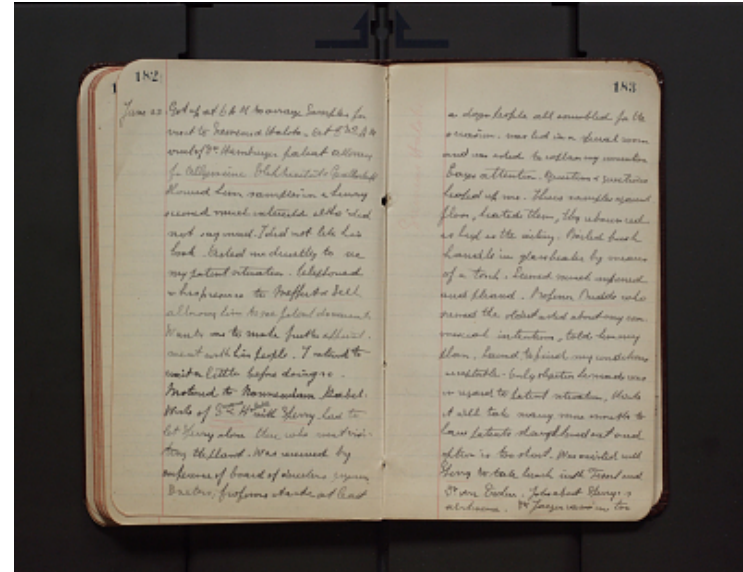 182
June 22. Got up at 6 A M to arrange Samples for
visit to Siemens & Halske. At 8 A M
visit of Dr. Hamburger patent attorney
for Allgemeine Elektricitäts Gesellschaft
Showed him samples in a hurry
seemed much interested altho' did
not say much. I did not like his
look. Wanted me directly to
my patent situation. Telephoned
in his presence to & Dell
allowing him to see patent documents.
Wants me to make further appoint-
ment with his people. I intend to
wait a little before doing so.
Motored to Nonnendam Kabel-
Werke of S & H with Sperry. Had to
let Sperry alone there who went visi-
ting the plant. Was received by
conference of board of directors
Doctors, professors etc. at least
183
a dozen people all assembled for the
occasion. was led in a special room
and was asked to explain my invention
Eager attention. Questions & questions
heaped up me. Threw samples against
floor, heated them, they rebounced
as high as the ceiling. Boiled brush
handle in glass beaker by means
of a torch. Seemed much impressed
and pleased. Professor who
seemed the oldest asked about my com-
mercial intention, told him my
plan, seemed to find my conditions
acceptable. Only objection he made was
in regard to patent situation, thinks
it will take many more months to
have patents straightened out and
option is too short. Was invited with
Sperry to take lunch with and
Dr. von . Joked about Sperry's
. Dr. Jaeger was in too